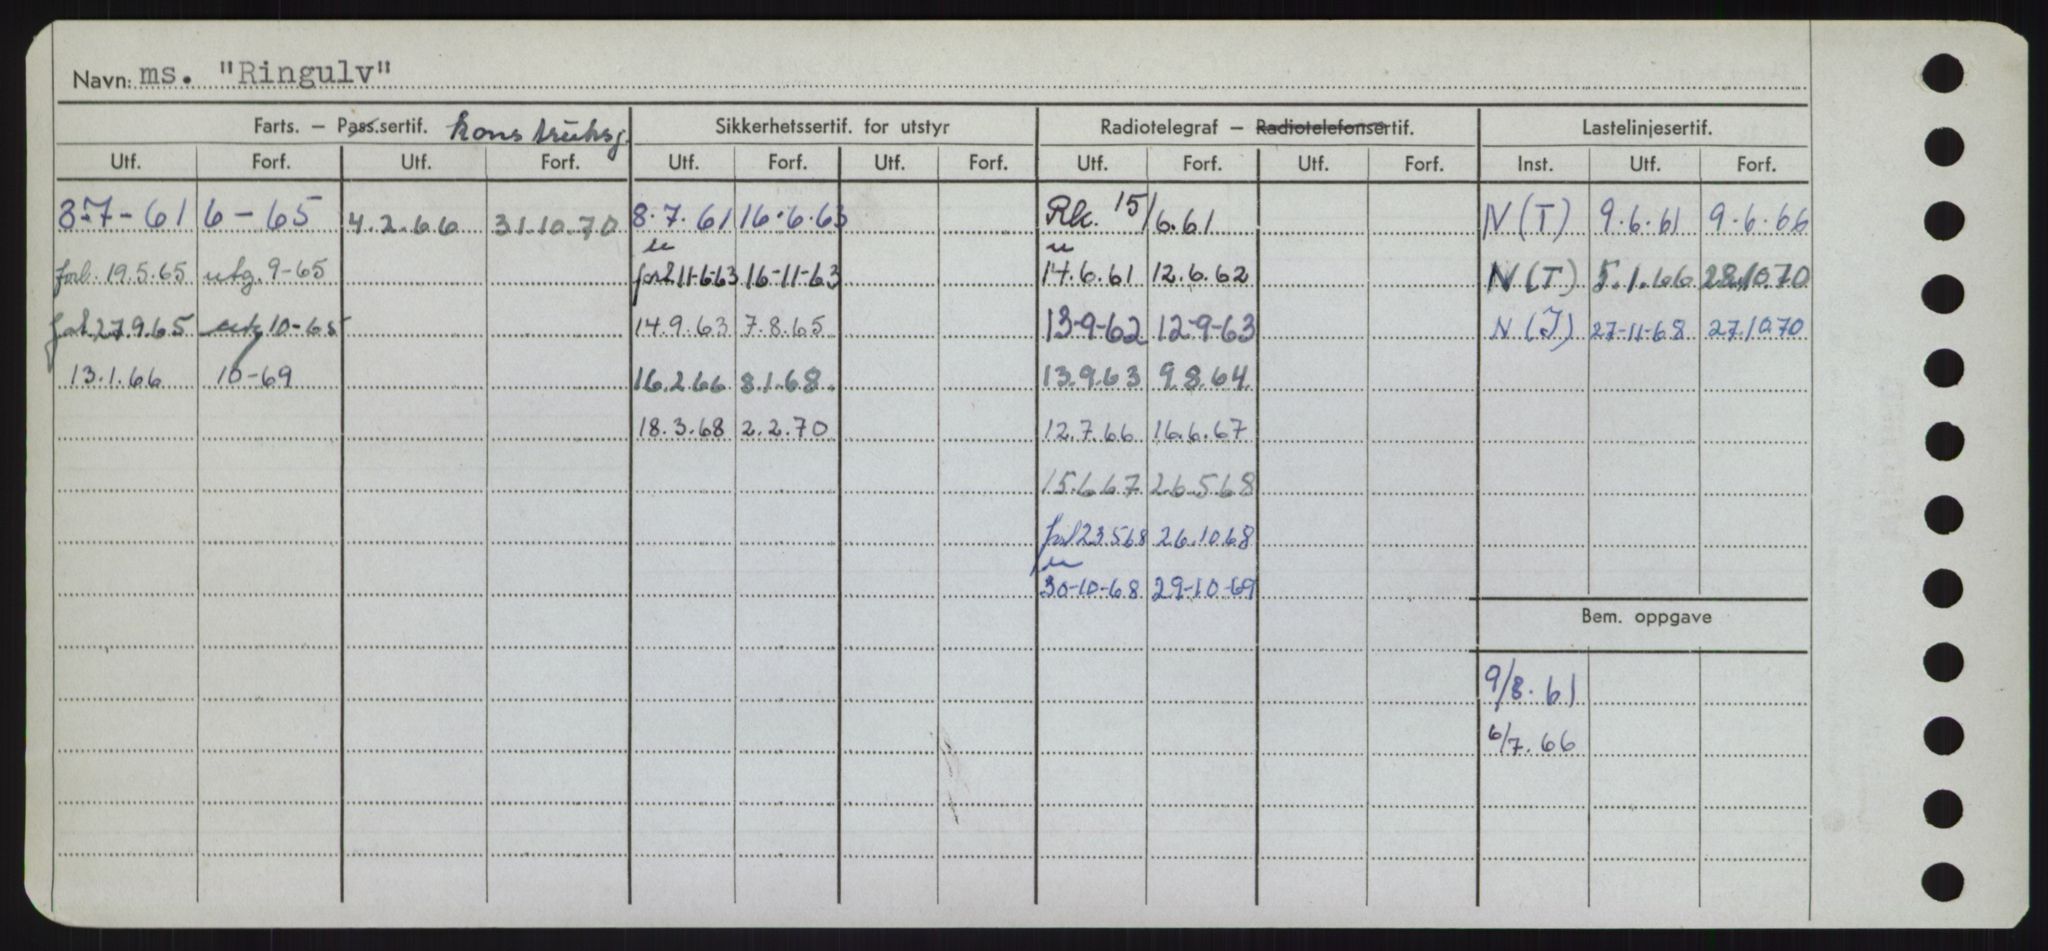 Navn: ms. "Ringulv"
Farts. – Pass.sertif. konstruksj. Sikkerhetssertif. for utstyr Radiotelegraf – Radiotelefonsertif. Lastelinjesertif.
Utf. Forf. Utf. Forf. Utf. Forf. Utf. Forf. Utf. Forf. Utf. Forf. Inst. Utf. Forf.
8-7-61 6-65 4.2.66 31.10.70 8.7.61 16.6.63 Rk. 15/6.61 N(T) 9.6.61 9.6.66
forl. 19.5.65 utg. 9-65 forl 11-6-63 16-11-63 14.6.61 12.6.62 N(T) 5.1.66 28.10.70
forl 27.9.65 utg 10-65 14.9.63 7.8.65 13-9-62 12-9-63 N(T) 27-11-68 27.10.70
13.1.66 10-69 16.2.66 8.1.68 13.9.63 9.8.64
18.3.68 2.2.70 12.7.66 16.6.67
15.6.67 26.5.68
forl 23.5.68 26.10.68
30-10-68 29-10-69
Bem. oppgave
9/8.61
6/7.66